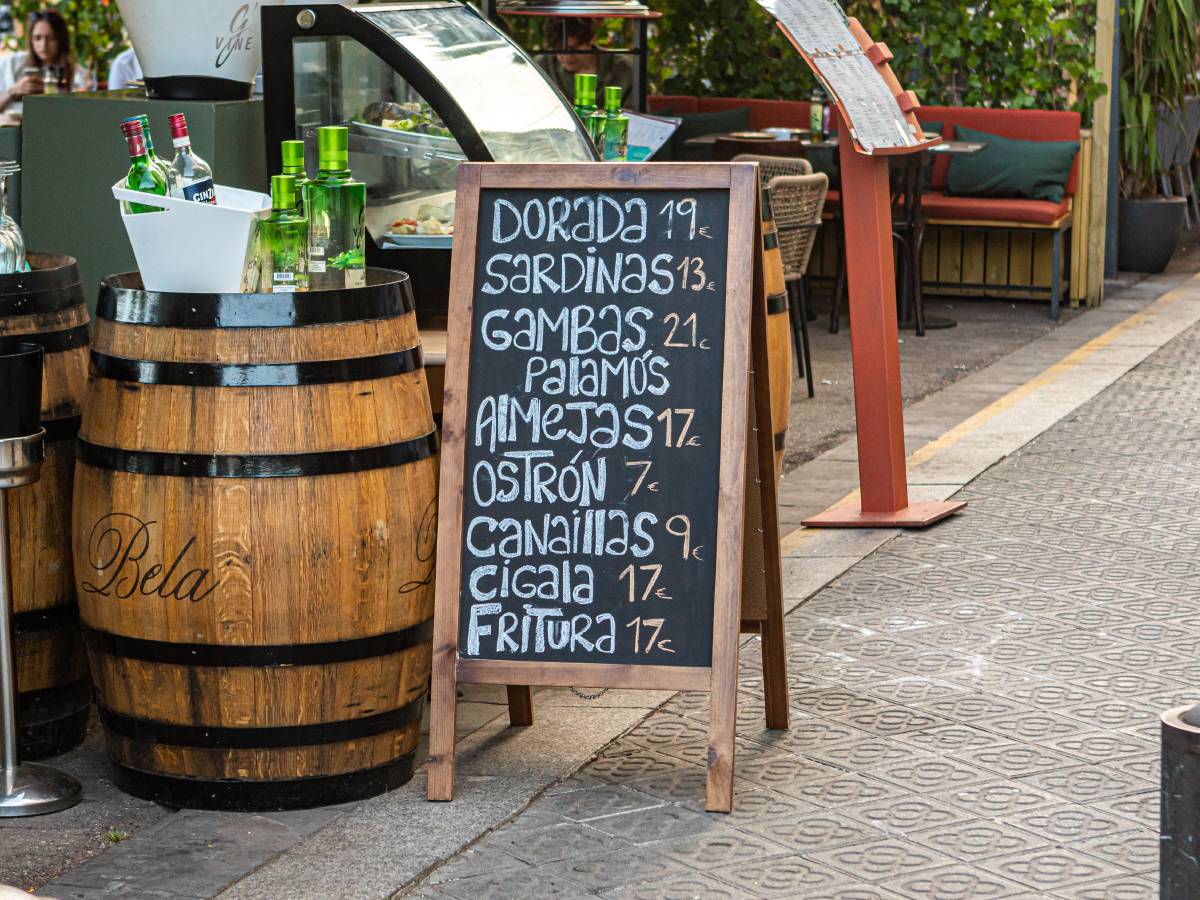 G'
VINE
CINZ
DORADA 19€
SARDINAS 13€
GAMBAS 21€
PALAMÓS
ALMEJAS 17€
OSTRÓN 7€
CANAILLAS 9€
CIGALA 17€
FRITURA 17€
Bela